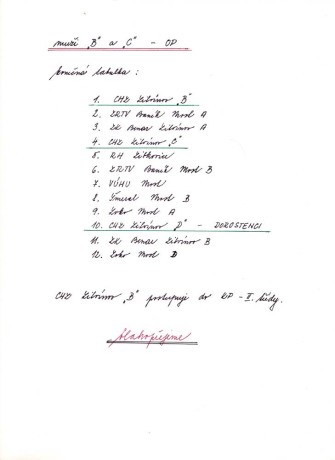 muži „B" a „C" - OP
konečná tabulka :
1. CHZ Litvínov „B"
2. ZRTV Baník Most A
3. Lok Benar Litvínov A
4. CHZ Litvínov „C"
5. RH Litkovice
6. ZRTV Baník Most B
7. VÚHU Most
8. Útvaral Most B
9. Loko Most A
10. CHZ Litvínov „D" - DOROSTENCI
11. Benar Litvínov B
12. Loko Most D
CHZ Litvínov „B" postupuje do KP - II. třídy.
blahopřejeme